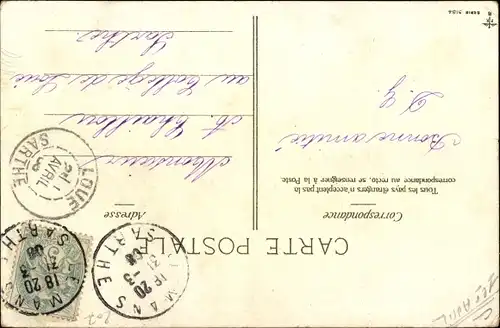 CARTE POSTALE
Correspondance
Tous les pays étrangers n'acceptent pas la
correspondance au recto, se renseigner à la Poste.
Bonne amitié
Adresse
Monsieur
A Chaillou
au Collège de Loué
Sarthe
LOUÉ
SARTHE
AVRIL
LE MANS
SARTHE
18 20
31-3
08
LE MANS
SARTHE
18 20
31-3
08